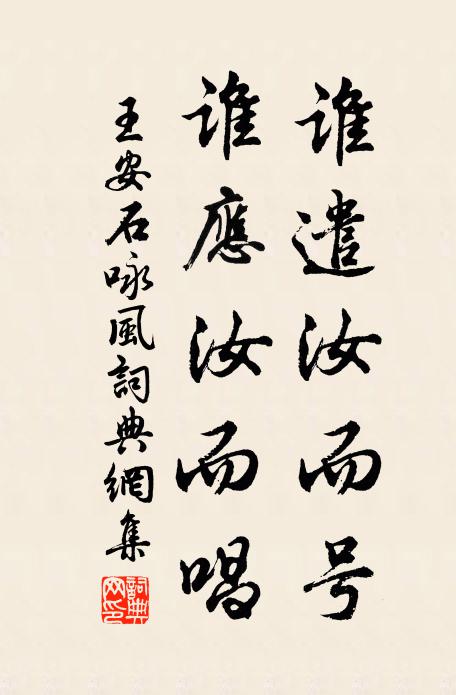 誰遣汝而号
誰應汝而唱
王安石咏風詞典網集
詞典网印